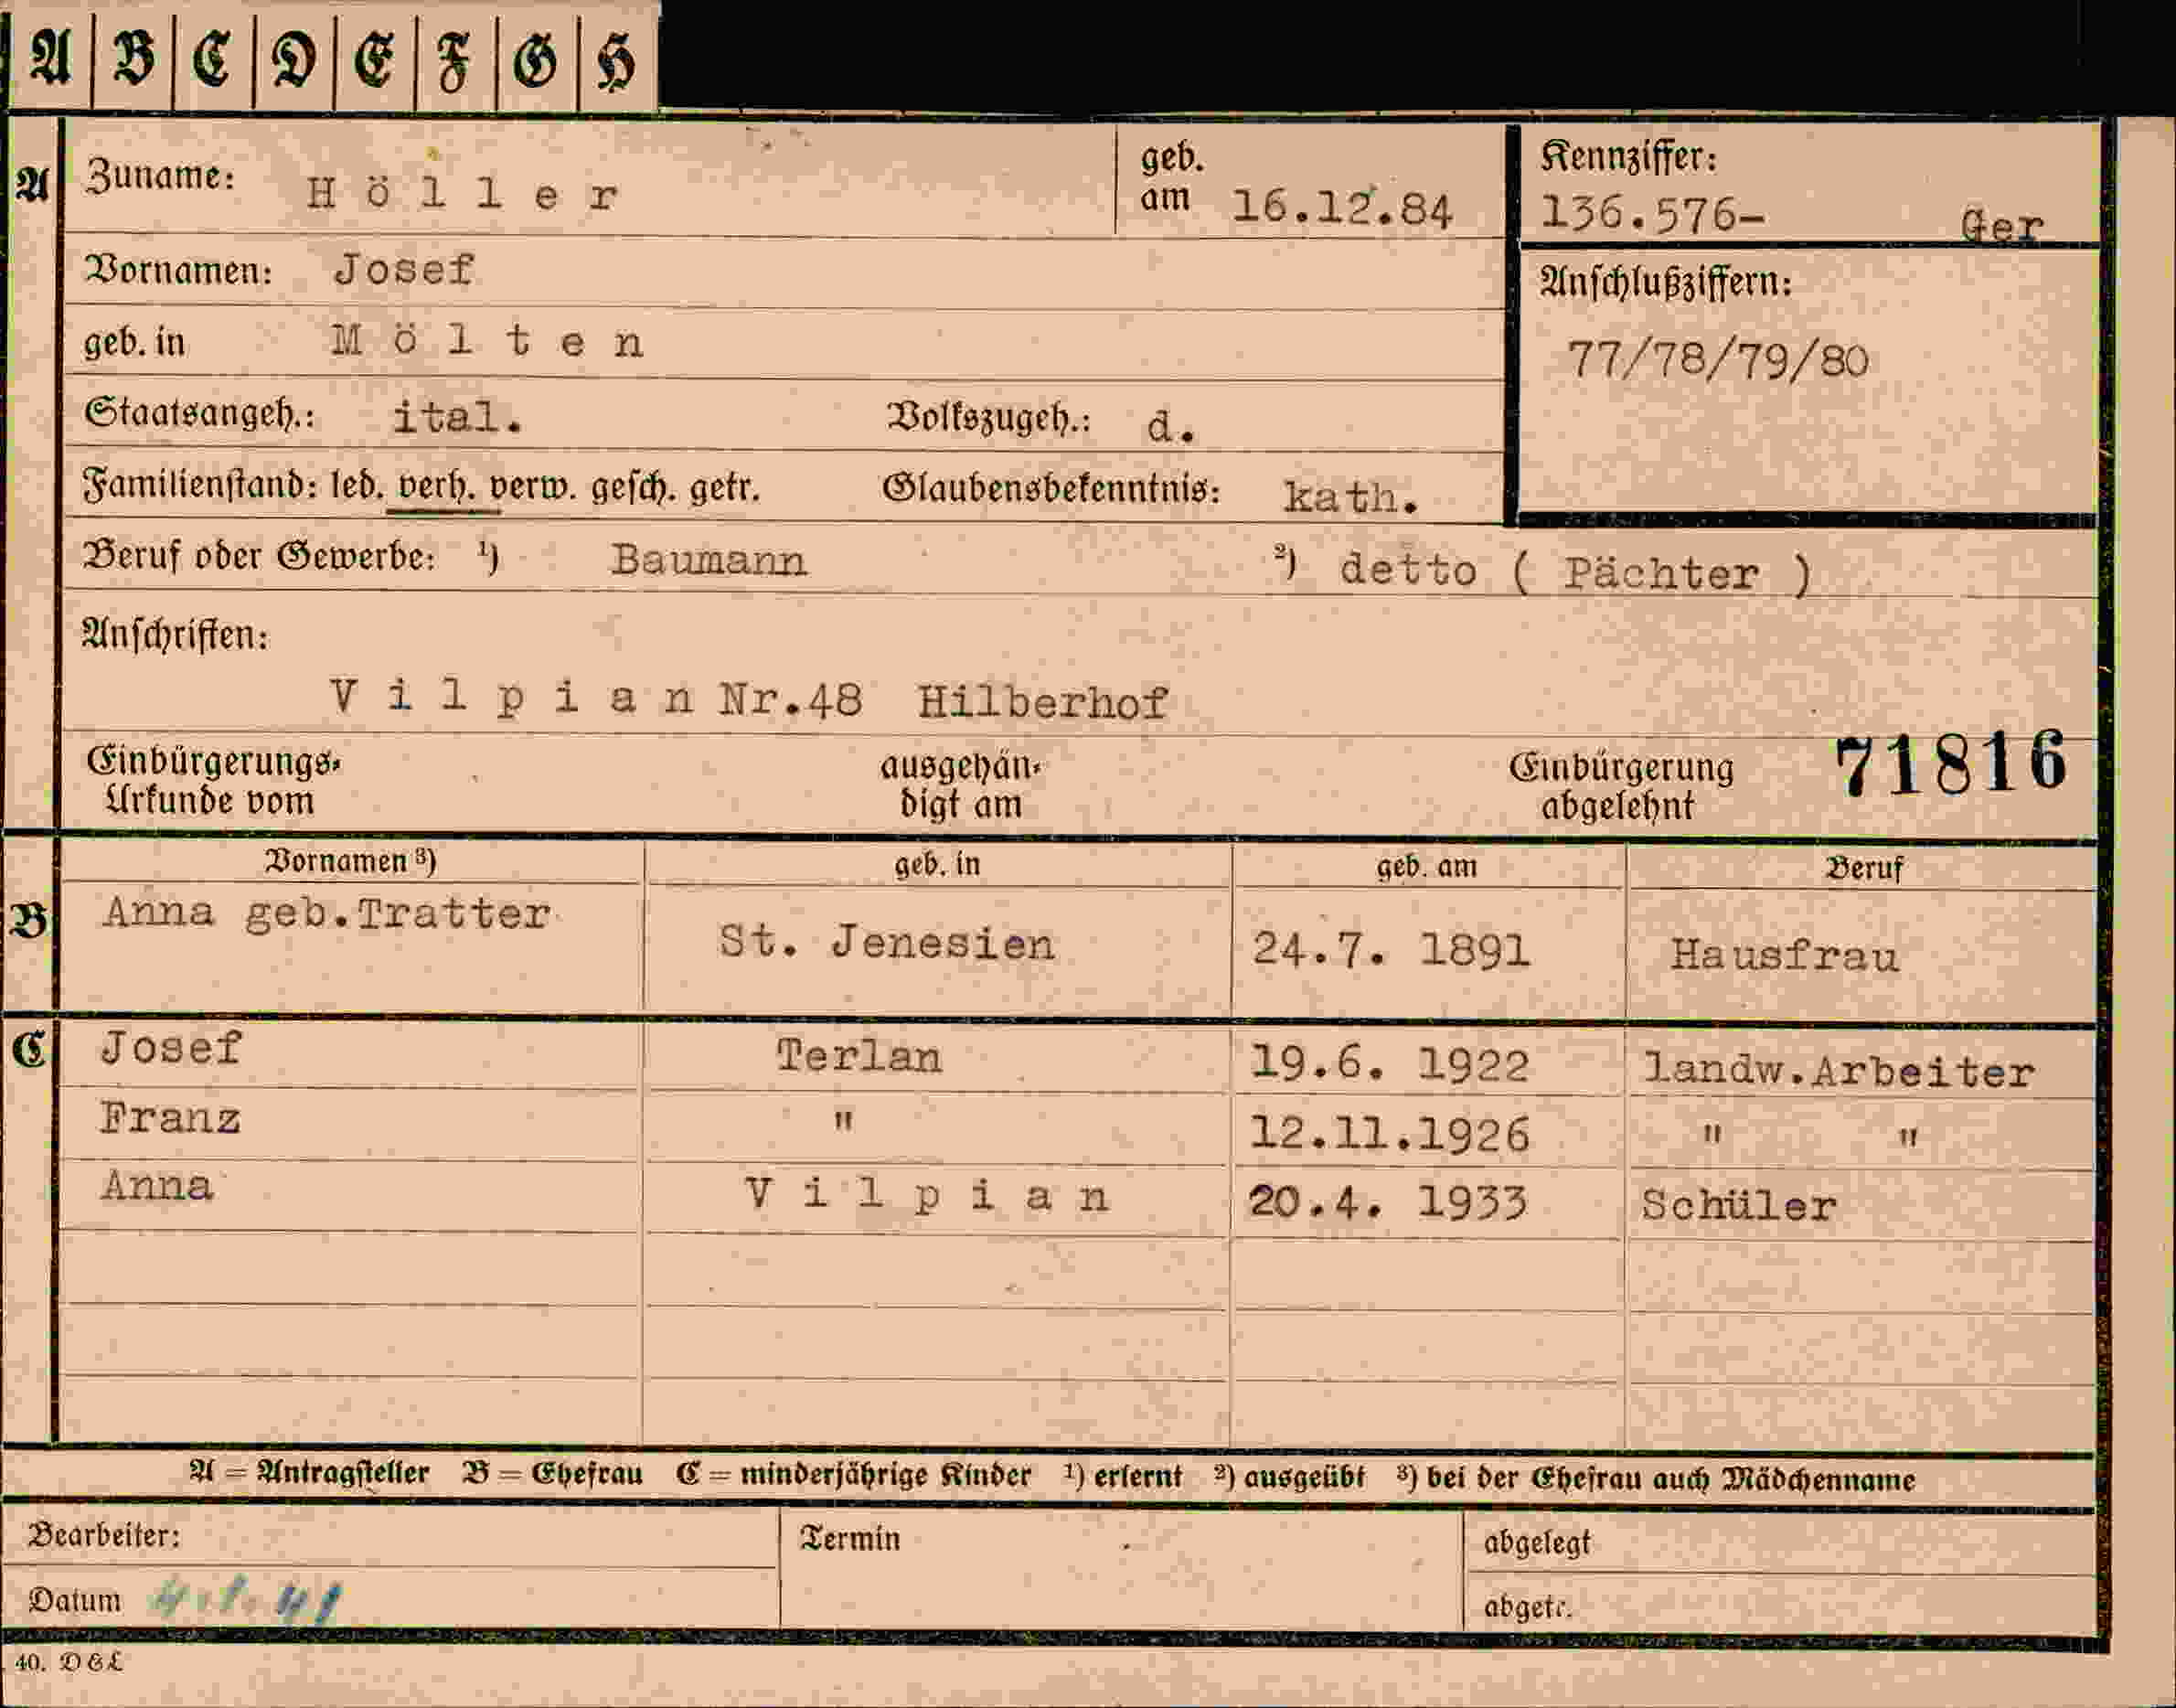 A B C D E F G H
A Zuname: Höller geb. am 16.12.84 Kennziffer: 136.576- Ger
Vornamen: Josef Anschlußziffern:
geb. in Mölten 77/78/79/80
Staatsangeh.: ital. Volkszugeh.: d.
Familienstand: led. verh. verw. gesch. getr. Glaubensbekenntnis: kath.
Beruf oder Gewerbe: ¹) Baumann ²) detto ( Pächter )
Anschriften:
Vilpian Nr.48 Hilberhof
Einbürgerungs- ausgehän- Einbürgerung 71816
Urkunde vom digt am abgelehnt
Vornamen ³) geb. in geb. am Beruf
B Anna geb.Tratter St. Jenesien 24.7. 1891 Hausfrau
C Josef Terlan 19.6. 1922 landw.Arbeiter
Franz " 12.11.1926 " "
Anna Vilpian 20.4. 1933 Schüler
A = Antragsteller B = Ehefrau C = minderjährige Kinder ¹) erlernt ²) ausgeübt ³) bei der Ehefrau auch Mädchenname
Bearbeiter: Termin abgelegt
Datum 4.1.41 abgetr.
40. DGL